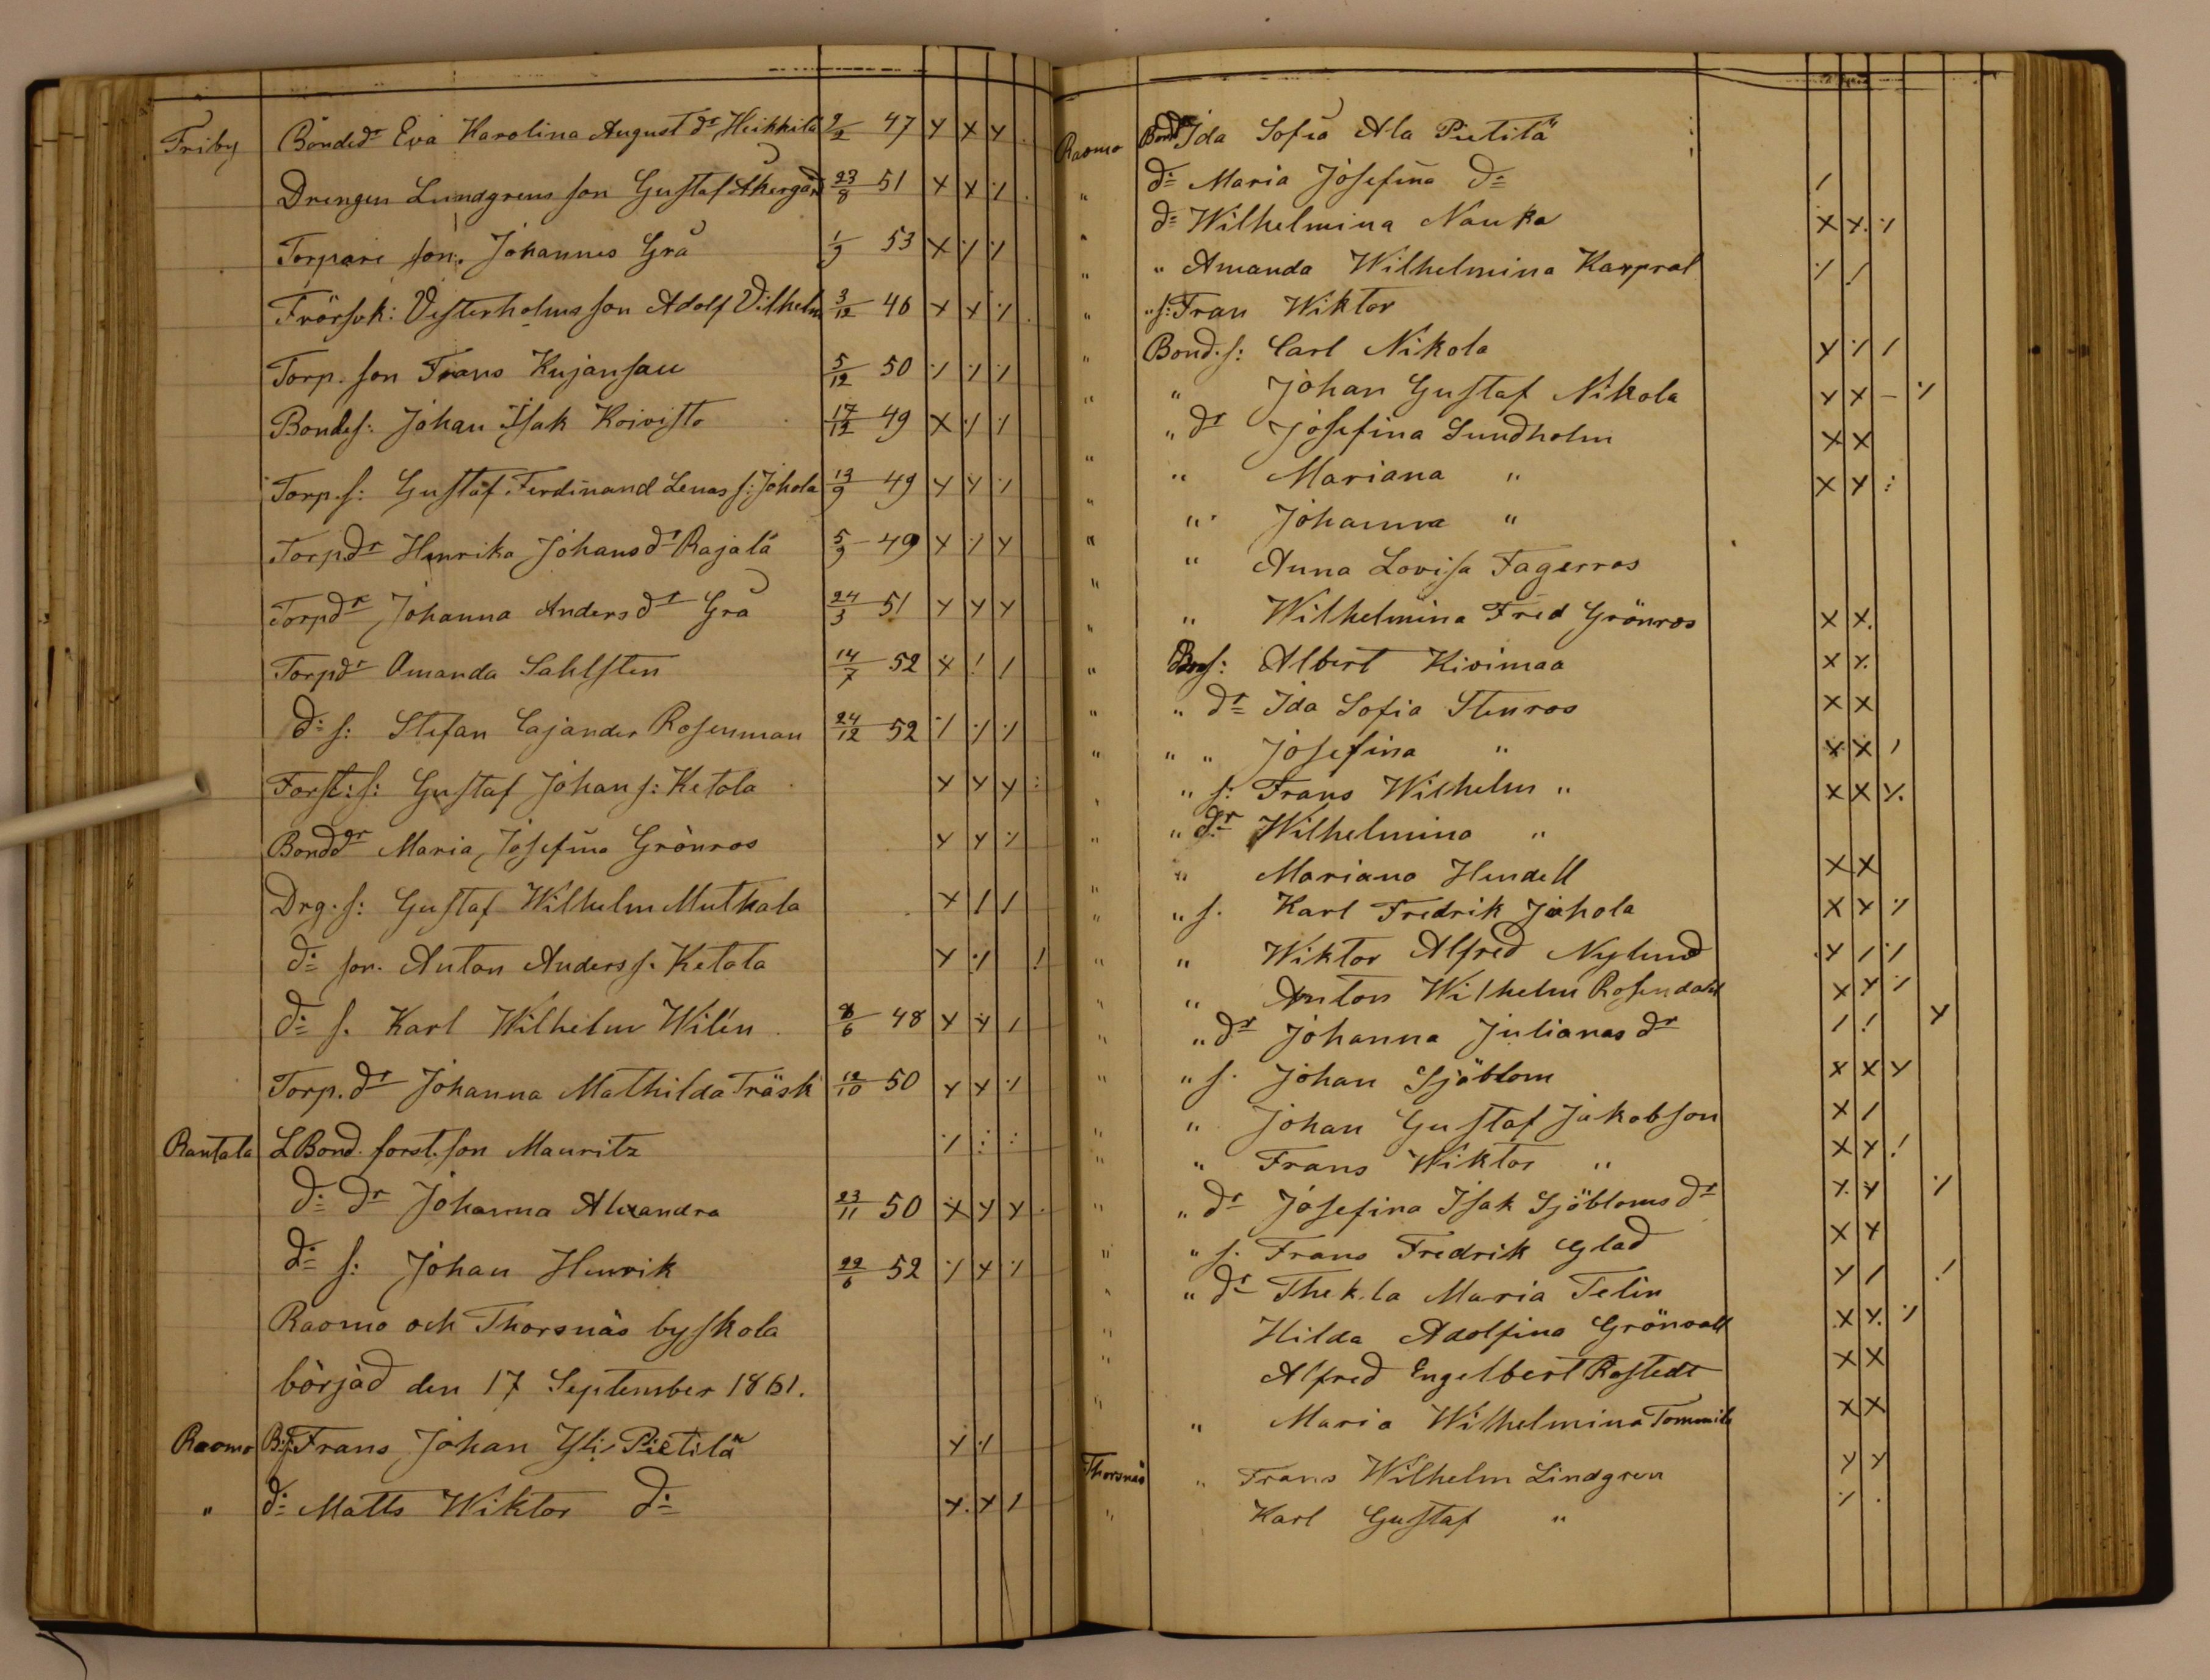 Friby Bonded:r Eva Karolina August d:r Heikkilä 2/2 47 x x x
Drengen Lundgrens son Gustaf Åkergård 23/8 51 x x ./.
Torpare son. Johannes Grå 1/9 53 x ./. ./.
Försvk: Vesterholms son Adolf Vilhelm 3/12 46 x x ./.
Torp. son Frans Kujansuu 5/12 50 ./. ./. ./.
Bondes: Johan Isak Koivisto 17/12 49 x ./. ./.
Torp. s: Gustaf Ferdinand Lenas s: Johola 13/9 49 x x ./.
Torpd:r Henrika Johansd:r Rajala 5/9 49 x ./. x
Torpd:r Johanna Andersd:r Grå 24/3 51 x x x
Torpd:r Amanda Sahlsten 14/7 52 x ! /
d:o s: Stefan Cajander Rosenman 24/12 52 ./. ./. ./.
Forst: s: Gustaf Johan s: Ketola x x x :
Bondd:r Maria Josefina Grönros x x ./.
Drg. s: Gustaf Wilhelm Muthala x / /
d:o son. Anton Anders s. Ketola x ./. !
d:o s. Karl Wilhelm Wilén 8/6 48 x x /
Torp. d:r Johanna Mathilda Träsk 12/10 50 x x ./.
Rantala L Bond. forst. son Mauritz ./. : :
d:o d:r Johanna Alexandra 23/11 50 x x x
d:o s: Johan Henrik 22/6 52 ./. x ./.
Raomo och Thorsnäs byskola
börjad den 17 September 1861.
Raomo B:s Frans Johan Yli Pietilä x ./.
" d:o Matts Wiktor d:o x x /
Raomo Bondd:r Ida Sofia Ala Pietilä
" d:o Maria Josefina d:o /
" d:o Wilhelmina Nauka x x ./.
" " Amanda Wilhelmina Karpral ./. /
" " s: Frans Wiktor
" Bond. s: Carl Nikola x ./. /
" " Johan Gustaf Nikola x x – ./.
" " d:r Josefina Sundholm x x
" " Mariana " x x :
" " Johanna "
" " Anna Lovisa Fagerros
" " Wilhelmina Fred Grönros x x
" Bons: Albert Kivimaa x x
" " d:r Ida Sofia Stenros x x
" " " Josefina " x x /
" " s: Frans Wilhelm " x x x
" " d:r Wilhelmina "
" " Mariana Hendell x x
" " s. Karl Fredrik Johola x x ./.
" " Wiktor Alfred Nylund x / ./.
" " Anton Wilhelm Rosendahl x x ./.
" " d:r Johanna Julianas d:r / ! x
" " s. Johan Sjöblom x x x
" " Johan Gustaf Jakobson x /
" " Frans Wiktor " x x !
" " d:r Josefina Isak Sjöbloms d:r x x ./.
" " s. Frans Fredrik Glad x x
" " d:r Thekla Maria Felin x / ./
" Hilda Adolfina Grönvall x x ./.
" Alfred Engelbert Rostedt x x
" " Maria Wilhelmina Tommila x x
Thorsnäs " Frans Wilhelm Lindgren x x
" Karl Gustaf " ./. .